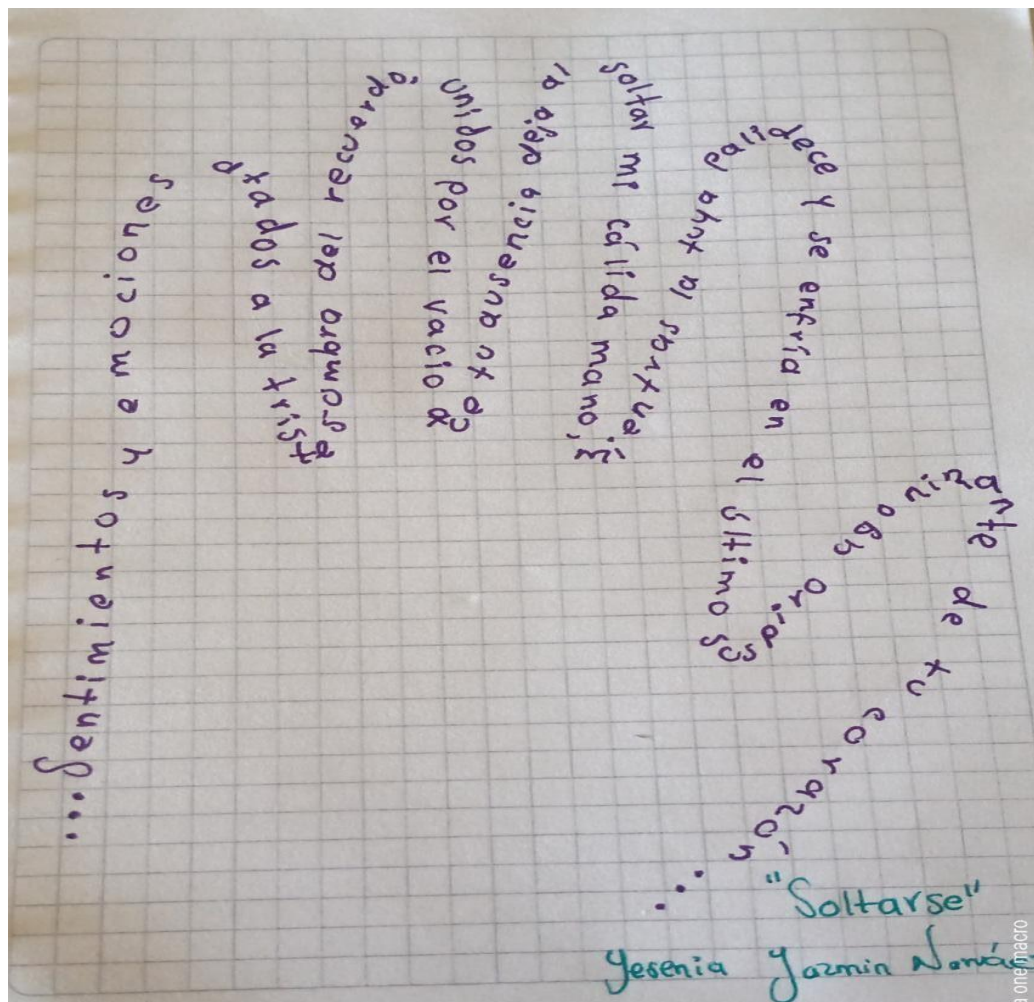 ...Sentimientos y emociones
atados a la trist
e sombra del recuerdo,
unidos por el vacío d
e tu ausencia deja al
soltar mi cálida mano, mi
entras la tuya palidece y se enfría en el último sus
piro agonizante de tu corazón
...
"Soltarse"
Yesenia Yazmin
one macro